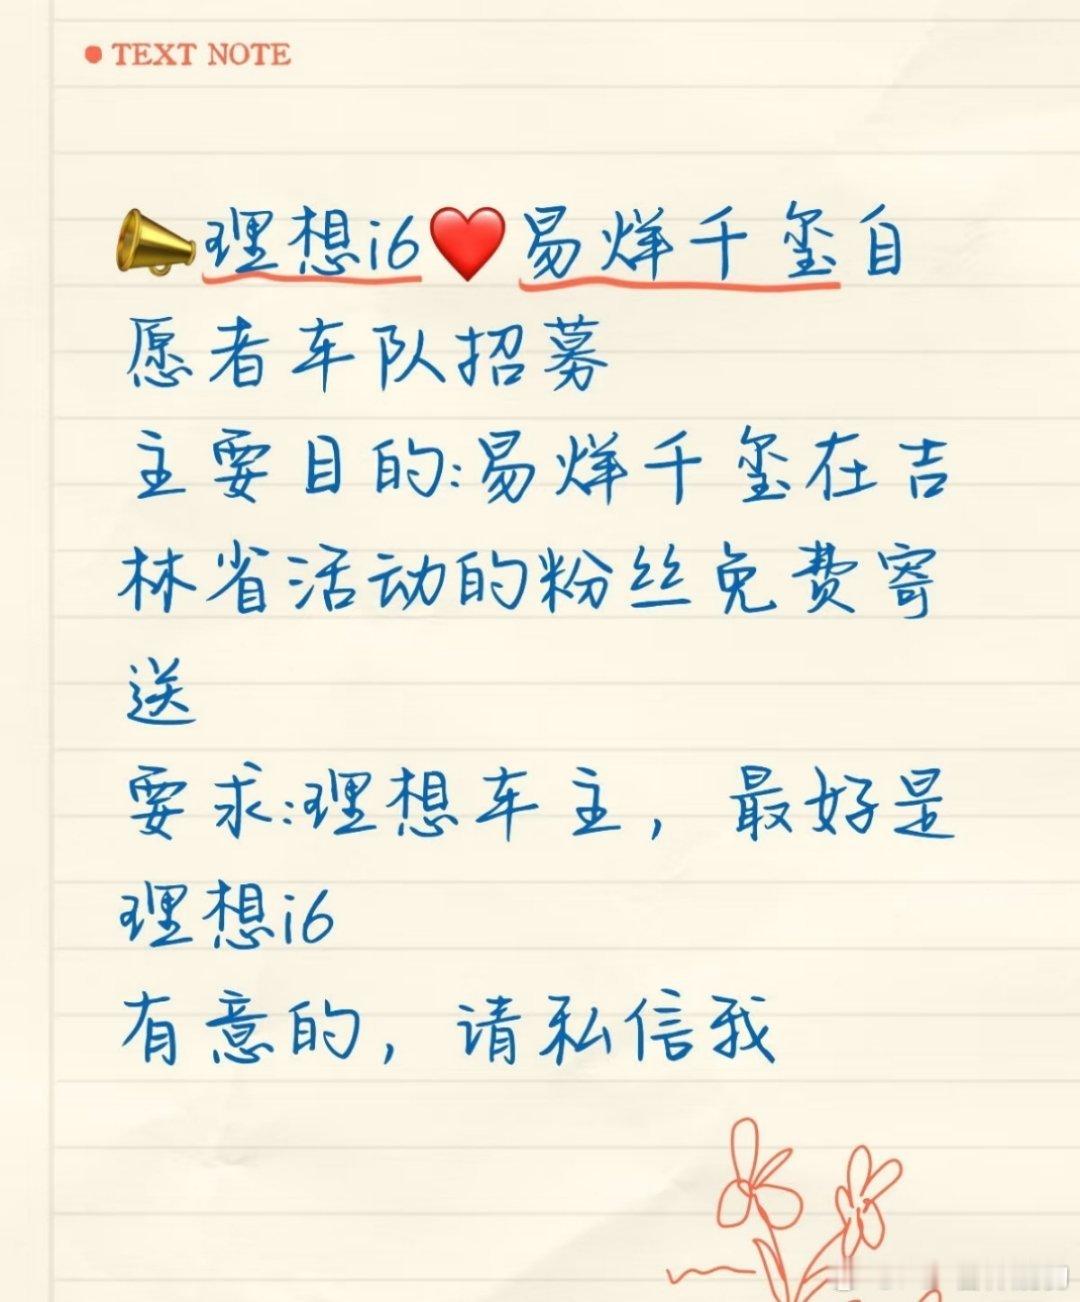 TEXT NOTE
📣理想i6❤️易烊千玺自
愿者车队招募
主要目的:易烊千玺在吉
林省活动的粉丝免费寄
送
要求:理想车主，最好是
理想i6
有意的，请私信我